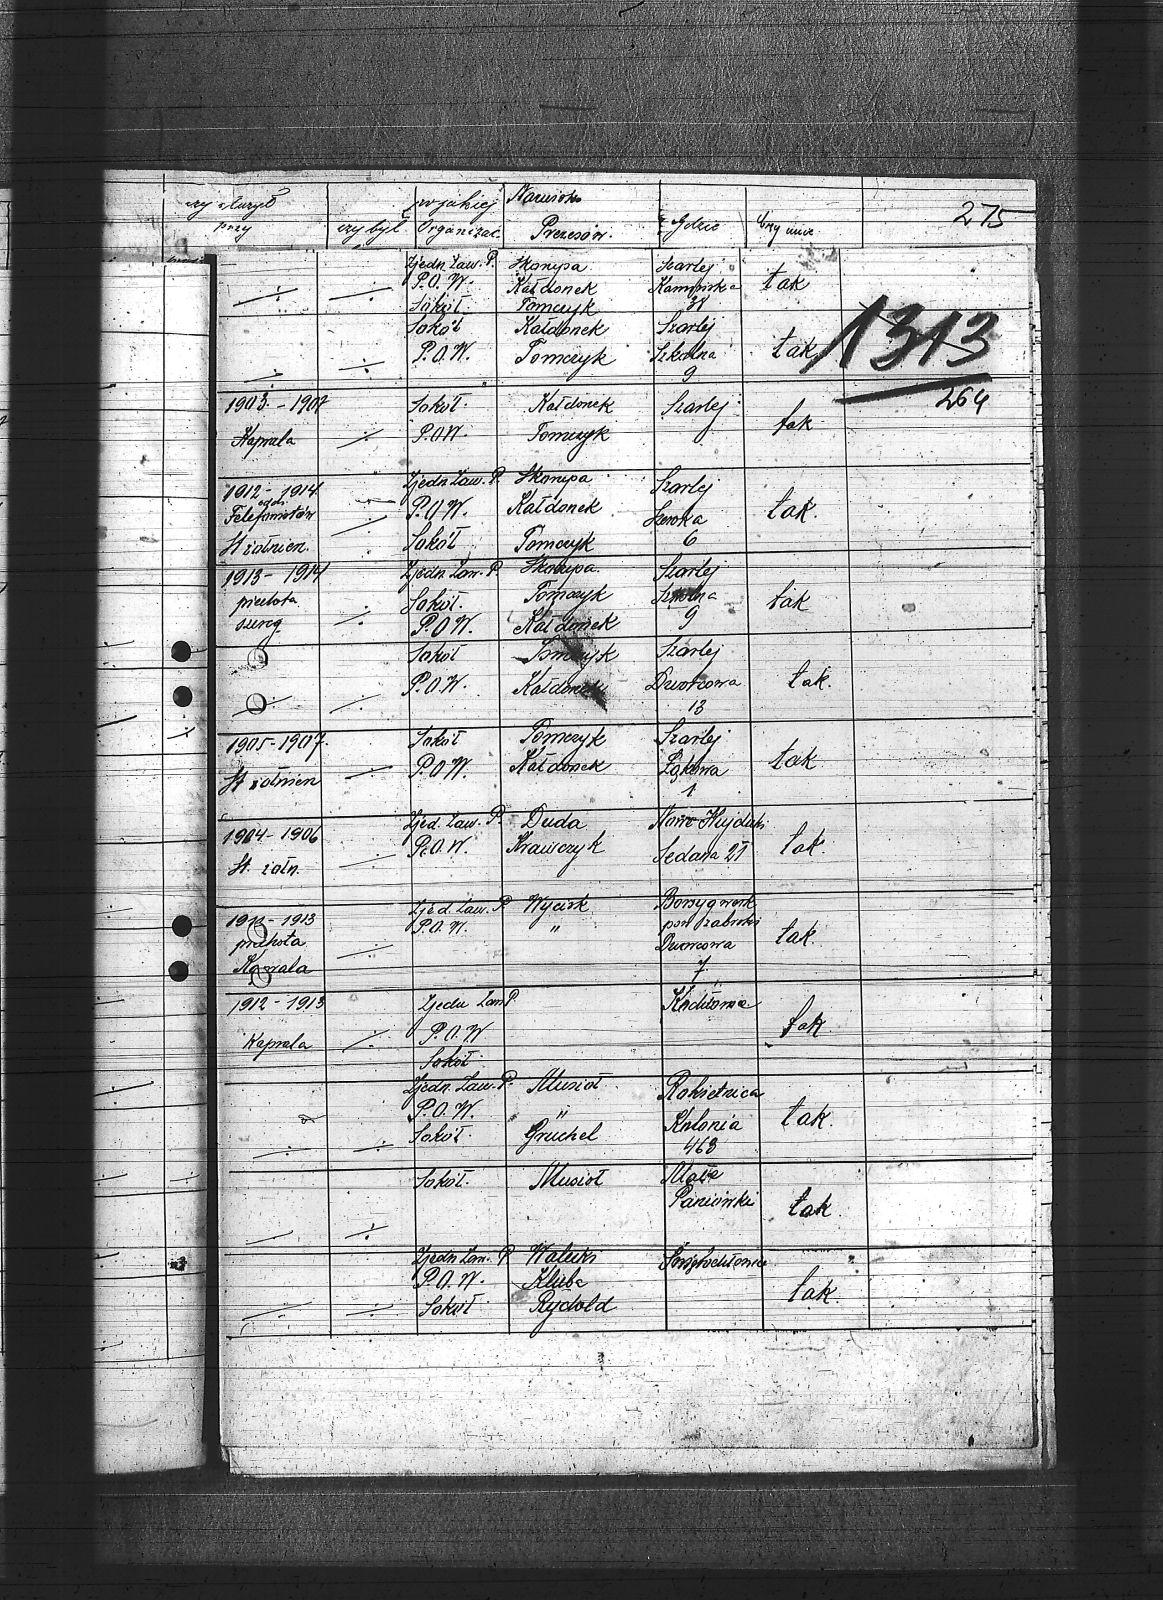 czy służył w jakiej Nazwisko 275
przy czy był Organizac. Prezesów. Gdzie Czy umie
Zjedn. Zaw. P. Skorupa Szarlej
P.O.W. Kałdonek tak
Sokół Tomczyk 31
Sokół Kałdonek Szarlej 1313
P.O.W. Tomczyk Szkolna tak
9
264
1903 - 1907 Sokół Kałdonek Szarlej
Kaprala P.O.W. Tomczyk tak
1912 - 1914 Zjedn. Zaw. P. Skorupa Szarlej
Telefonistów P.O.W. Kałdonek tak.
St żołnierz. Sokół Tomczyk 6
1913 - 1914 Zjedn. Zaw. P. Skorupa Szarlej
piechota Sokół. Tomczyk Szkolna tak
P.O.W. Kałdonek 9
Sokół Tomczyk Szarlej
P.O.W. Kałdonek Dworcowa tak.
13
1905 - 1907. Sokół Tomczyk Szarlej
St żołnierz P.O.W. Kałdonek Łąkowa tak
1
1904 - 1906 Zjed. Zaw. P. Duda Nowo Hajduki
St. żołn. P.O.W. Krawczyk Sedana 21 tak.
1912 - 1913 Zjed. Zaw. P. Wycisk Borsygwerk
piechota P.O.W. " pow. Zabrski tak.
Kaprala Dworcowa
7
1912 - 1913 Zjedn Zaw P
Kaprala P.O.W tak
Sokół
Zjedn. Zaw. P. Musioł Rokietnica
P.O.W. " Kolonia tak.
Sokół. Gruchel 463
Sokół. Musioł Małe
Paniówki tak
Zjedn Zaw. P Świętochłowice
P.O.W. Kluba tak.
Sokół Rydold